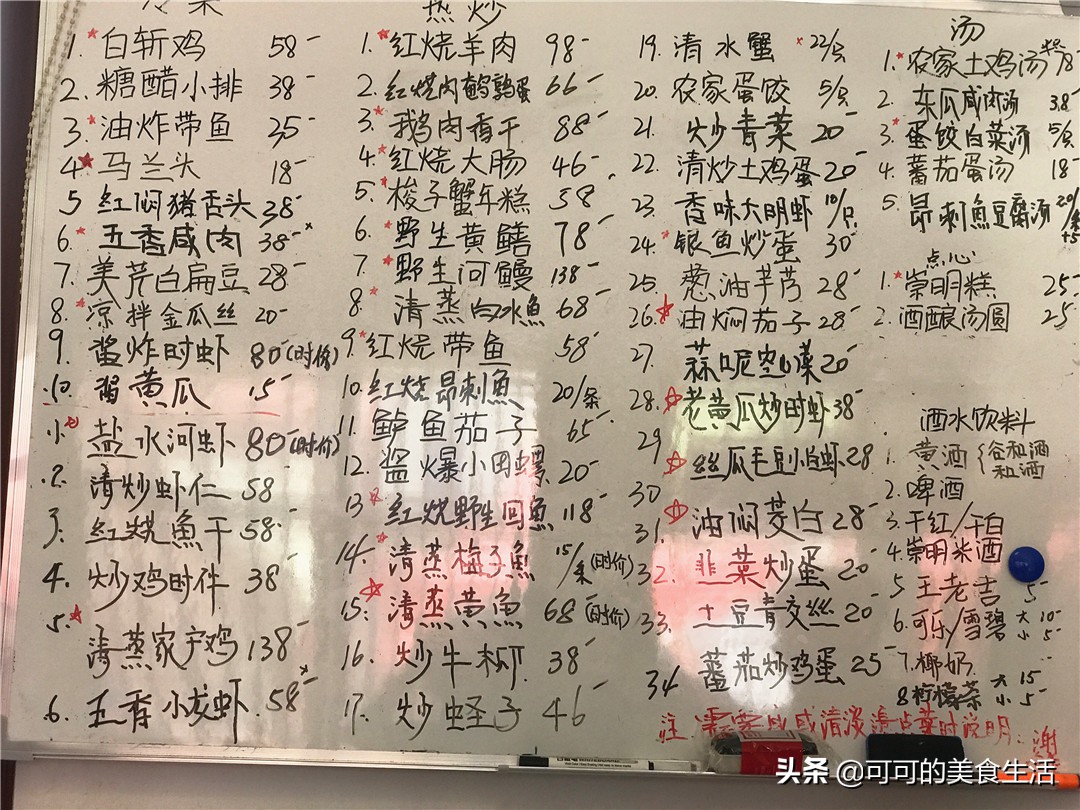 冷菜
1.白斩鸡 58-
2.糖醋小排 38-
3.油炸带鱼 35-
4.马兰头 18-
5 红焖猪舌头 38-
6.五香咸肉 38-
7.美芹白扁豆 28-
8.凉拌金瓜丝 20-
9.酱炸时虾 80(时价)
10.酱黄瓜 15-
盐水河虾 80(时价)
2.清炒虾仁 58
3.红烧鱼干 58-
4.炒鸡时件 38
5.清蒸家产鸡 138-
6.五香小龙虾 58-
热炒
1.红烧羊肉 98-
2.红烧肉鹌鹑蛋 66-
3.鹅肉香干 88-
4.红烧大肠 46-
5.梭子蟹年糕 58
6.野生黄鳝 78-
7.野生河鳗 138-
8.清蒸白水鱼 68-
9.红烧带鱼 58-
10.红烧昂刺鱼 20/条
11.鲈鱼茄子 65-
12.酱爆小田螺 20-
13 红烧野生回鱼 118-
14.清蒸梅子鱼 15/条(时价)
15.清蒸黄鱼 68(时价)
16.炒牛柳 38-
17.炒蛏子 46-
19.清水蟹 22/只
20.农家蛋饺 5/只
21.炒青菜 20-
22.清炒土鸡蛋 20-
23.香味大明虾 10/只
24.银鱼炒蛋 30-
25.葱油芋艿 28-
26.油焖茄子 28-
27.蒜呢空心菜 20-
28.老黄瓜炒时虾 38-
29 丝瓜毛豆小白虾 28
30
31.油焖茭白 28-
32.韭菜炒蛋 20-
33.土豆青交丝 20-
34 蕃茄炒鸡蛋 25-
汤
1.农家土鸡汤 78
2.东瓜咸肉汤 38-
3.蛋饺白菜汤 5/只
4.蕃茄蛋汤 18-
5.昂刺鱼豆腐汤 20/条+5
点心
1.崇明糕 25-
2.酒酿汤圆 25
酒水饮料
1.黄酒{谷和酒
和酒
2.啤酒
3.干红/干白
4.崇明米酒
5 王老吉 5-
6.可乐/雪碧 大 10-
小 5-
7.椰奶 大 15
8 柠檬茶 小 5-
注 成咸清淡请点菜时说明 谢
头条 @可可的美食生活